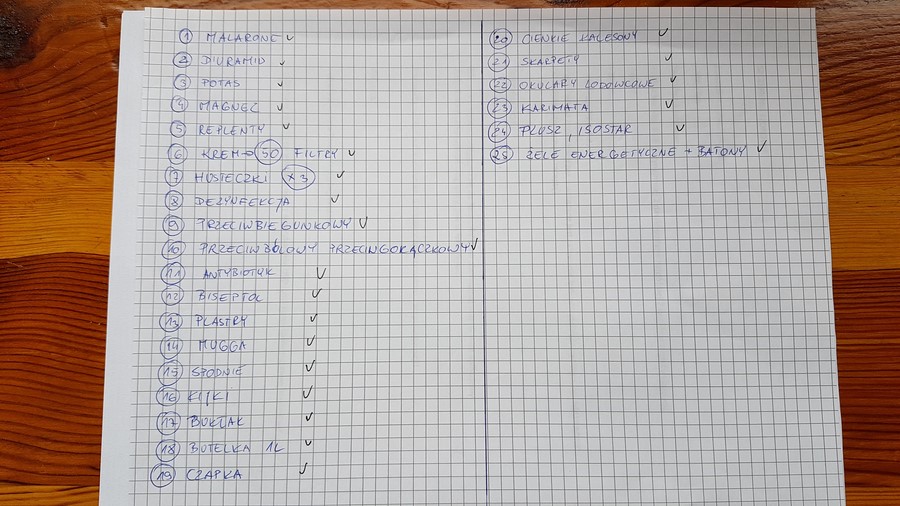 1 MALARONE ✓
2 DIURAMID ✓
3 POTAS ✓
4 MAGNEZ ✓
5 REPLENTY ✓
6 KREM 50 FILTRY ✓
7 HUSTECZKI x3 ✓
8 DEZYNFEKCJA ✓
9 PRZECIWBIEGUNKOWY ✓
10 PRZECIWBÓLOWY PRZECINGORĄCZKOWY ✓
11 ANTYBIOTYK ✓
12 BISEPTOL ✓
13 PLASTRY ✓
14 MUGGA ✓
15 SPODNIE ✓
16 KIJKI ✓
17 BUKŁAK ✓
18 BUTELKA 1L ✓
19 CZAPKA ✓
20 CIENKIE KALESONY ✓
21 SKARPETY ✓
22 OKULARY LODOWCOWE ✓
23 KARIMATA ✓
24 PLUSZ, ISOSTAR ✓
25 ŻELE ENERGETYCZNE + BATONY ✓